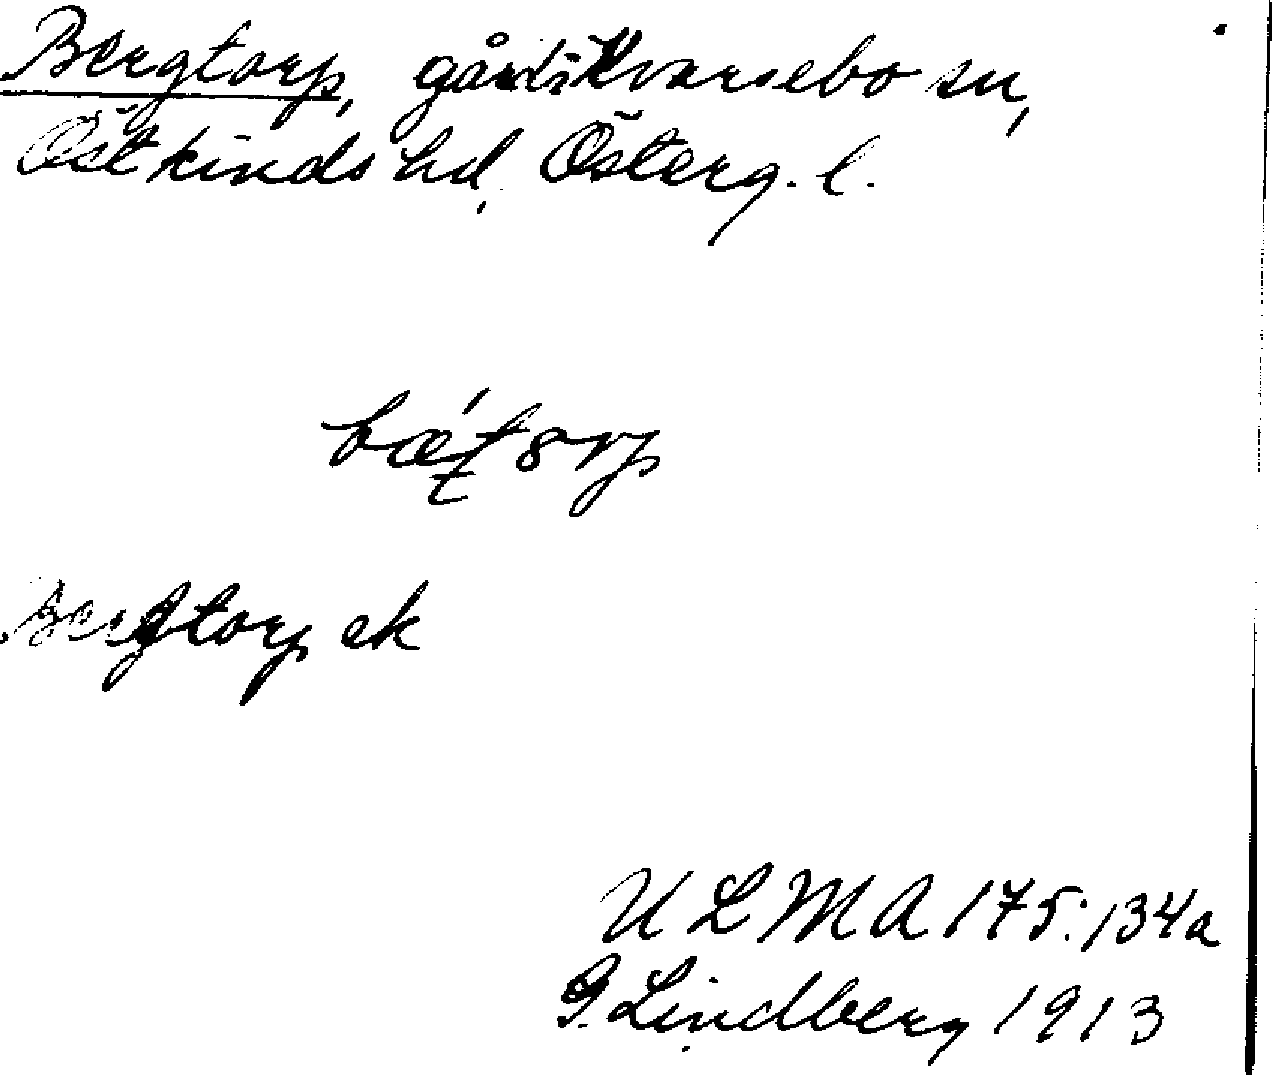 Bergtorp, gård i Kvarsebo sn,
Östkinds hd, Österg. l.
bǽt8rp
Bergtorp ek
ULMA 175:134a
G. Lindberg 1913